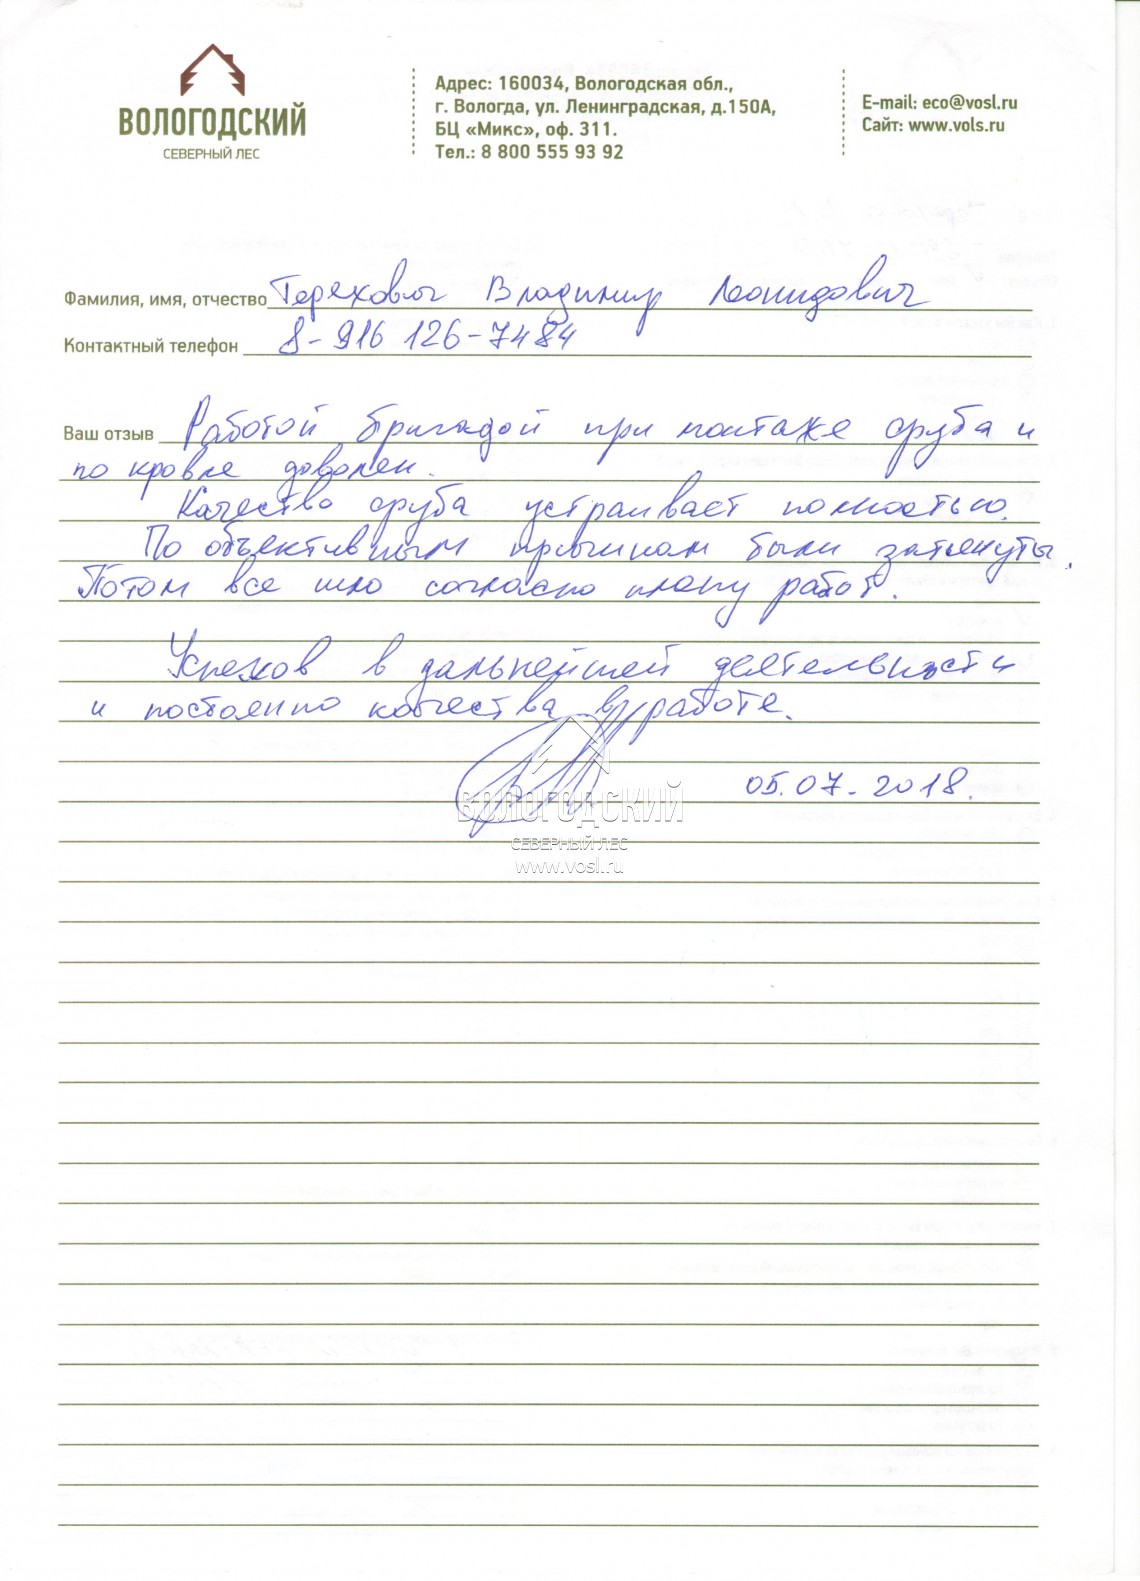 ВОЛОГОДСКИЙ
СЕВЕРНЫЙ ЛЕС
Адрес: 160034, Вологодская обл.,
г. Вологда, ул. Ленинградская, д.150А,
БЦ «Микс», оф. 311.
Тел.: 8 800 555 93 92
E-mail: eco@vosl.ru
Сайт: www.vols.ru
Фамилия, имя, отчество Терехович Владимир Леонидович
Контактный телефон 8-916 126-7484
Ваш отзыв Работой бригадой при монтаже сруба и
по кровле доволен.
Качество сруба устраивает полностью.
По объективным причинам были затянуты.
Потом все шло согласно плану работ.
Успехов в дальнейшей деятельности
и постоянно качества в работе.
05.07.2018.
ВОЛОГОДСКИЙ
СЕВЕРНЫЙ ЛЕС
www.vosl.ru